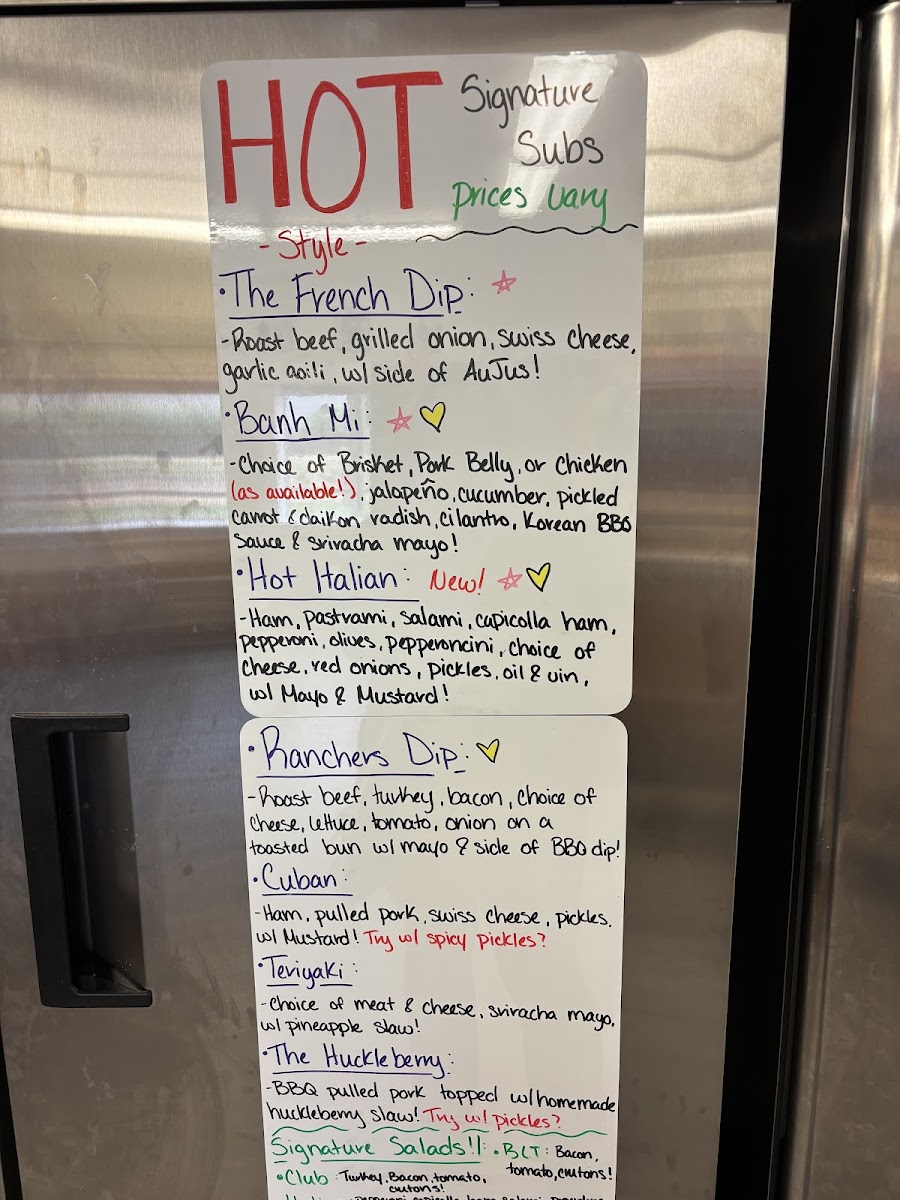 HOT Signature
Subs
prices vary
- Style -
• The French Dip:
- Roast beef, grilled onion, swiss cheese,
garlic aoili, w/ side of AuJus!
• Banh Mi:
- Choice of Brisket, Pork Belly, or Chicken
(as available!), jalapeño, cucumber, pickled
carrot & daikon radish, cilantro, Korean BBQ
Sauce & sriracha mayo!
• Hot Italian: New!
- Ham, pastrami, salami, capicolla ham,
pepperoni, olives, pepperoncini, choice of
cheese, red onions, pickles, oil & vin,
w/ Mayo & Mustard!
• Ranchers Dip:
- Roast beef, turkey, bacon, choice of
cheese, lettuce, tomato, onion on a
toasted bun w/ mayo & side of BBQ dip!
• Cuban:
- Ham, pulled pork, swiss cheese, pickles.
w/ Mustard! Try w/ spicy pickles?
• Teriyaki:
- Choice of meat & cheese, sriracha mayo,
w/ pineapple slaw!
• The Huckleberry:
- BBQ pulled pork topped w/ homemade
huckleberry slaw! Try w/ pickles?
Signature Salads!! • BLT: Bacon,
tomato, crutons!
• Club: Turkey, Bacon, tomato,
crutons!